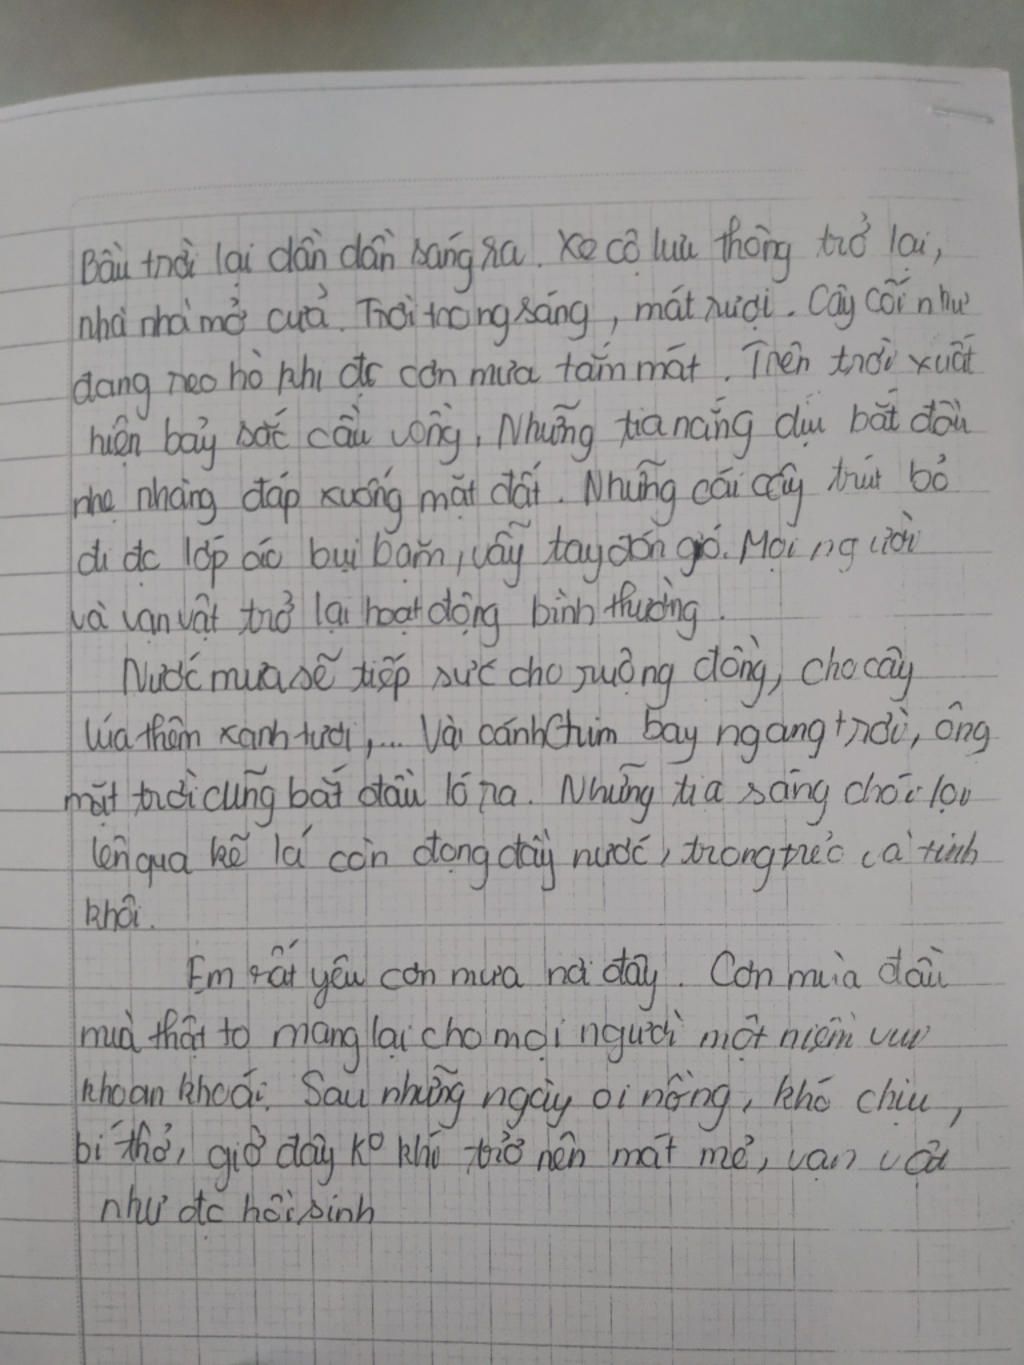 Bầu trời lại dần dần sáng ra. Xe cộ lưu thông trở lại,
nhà nhà mở cửa. Trời trong sáng, mát rượi. Cây cối như
đang reo hò khi đc cơn mưa tắm mát. Trên trời xuất
hiện bảy sắc cầu vồng, Những tia nắng dịu bắt đầu
nhẹ nhàng đáp xuống mặt đất. Những cái cây trút bỏ
đi đc lớp áo bụi bặm, vẫy tay đón gió. Mọi người
và vạn vật trở lại hoạt động bình thường.
Nước mưa sẽ tiếp sức cho ruộng đồng, cho cây
lúa thêm xanh tươi,... Vài cánh Chim bay ngang trời, ông
mặt trời cũng bắt đầu ló ra. Những tia sáng chói lọi
lên qua kẽ lá còn đọng đầy nước, trong trẻo và tinh
khôi.
Em rất yêu cơn mưa nơi đây. Cơn mưa đầu
mùa thật to mang lại cho mọi người một niềm vui
khoan khoái. Sau những ngày oi nồng, khó chịu,
bí thở, giờ đây ko khí trở nên mát mẻ, vạn vật
như đc hồi sinh